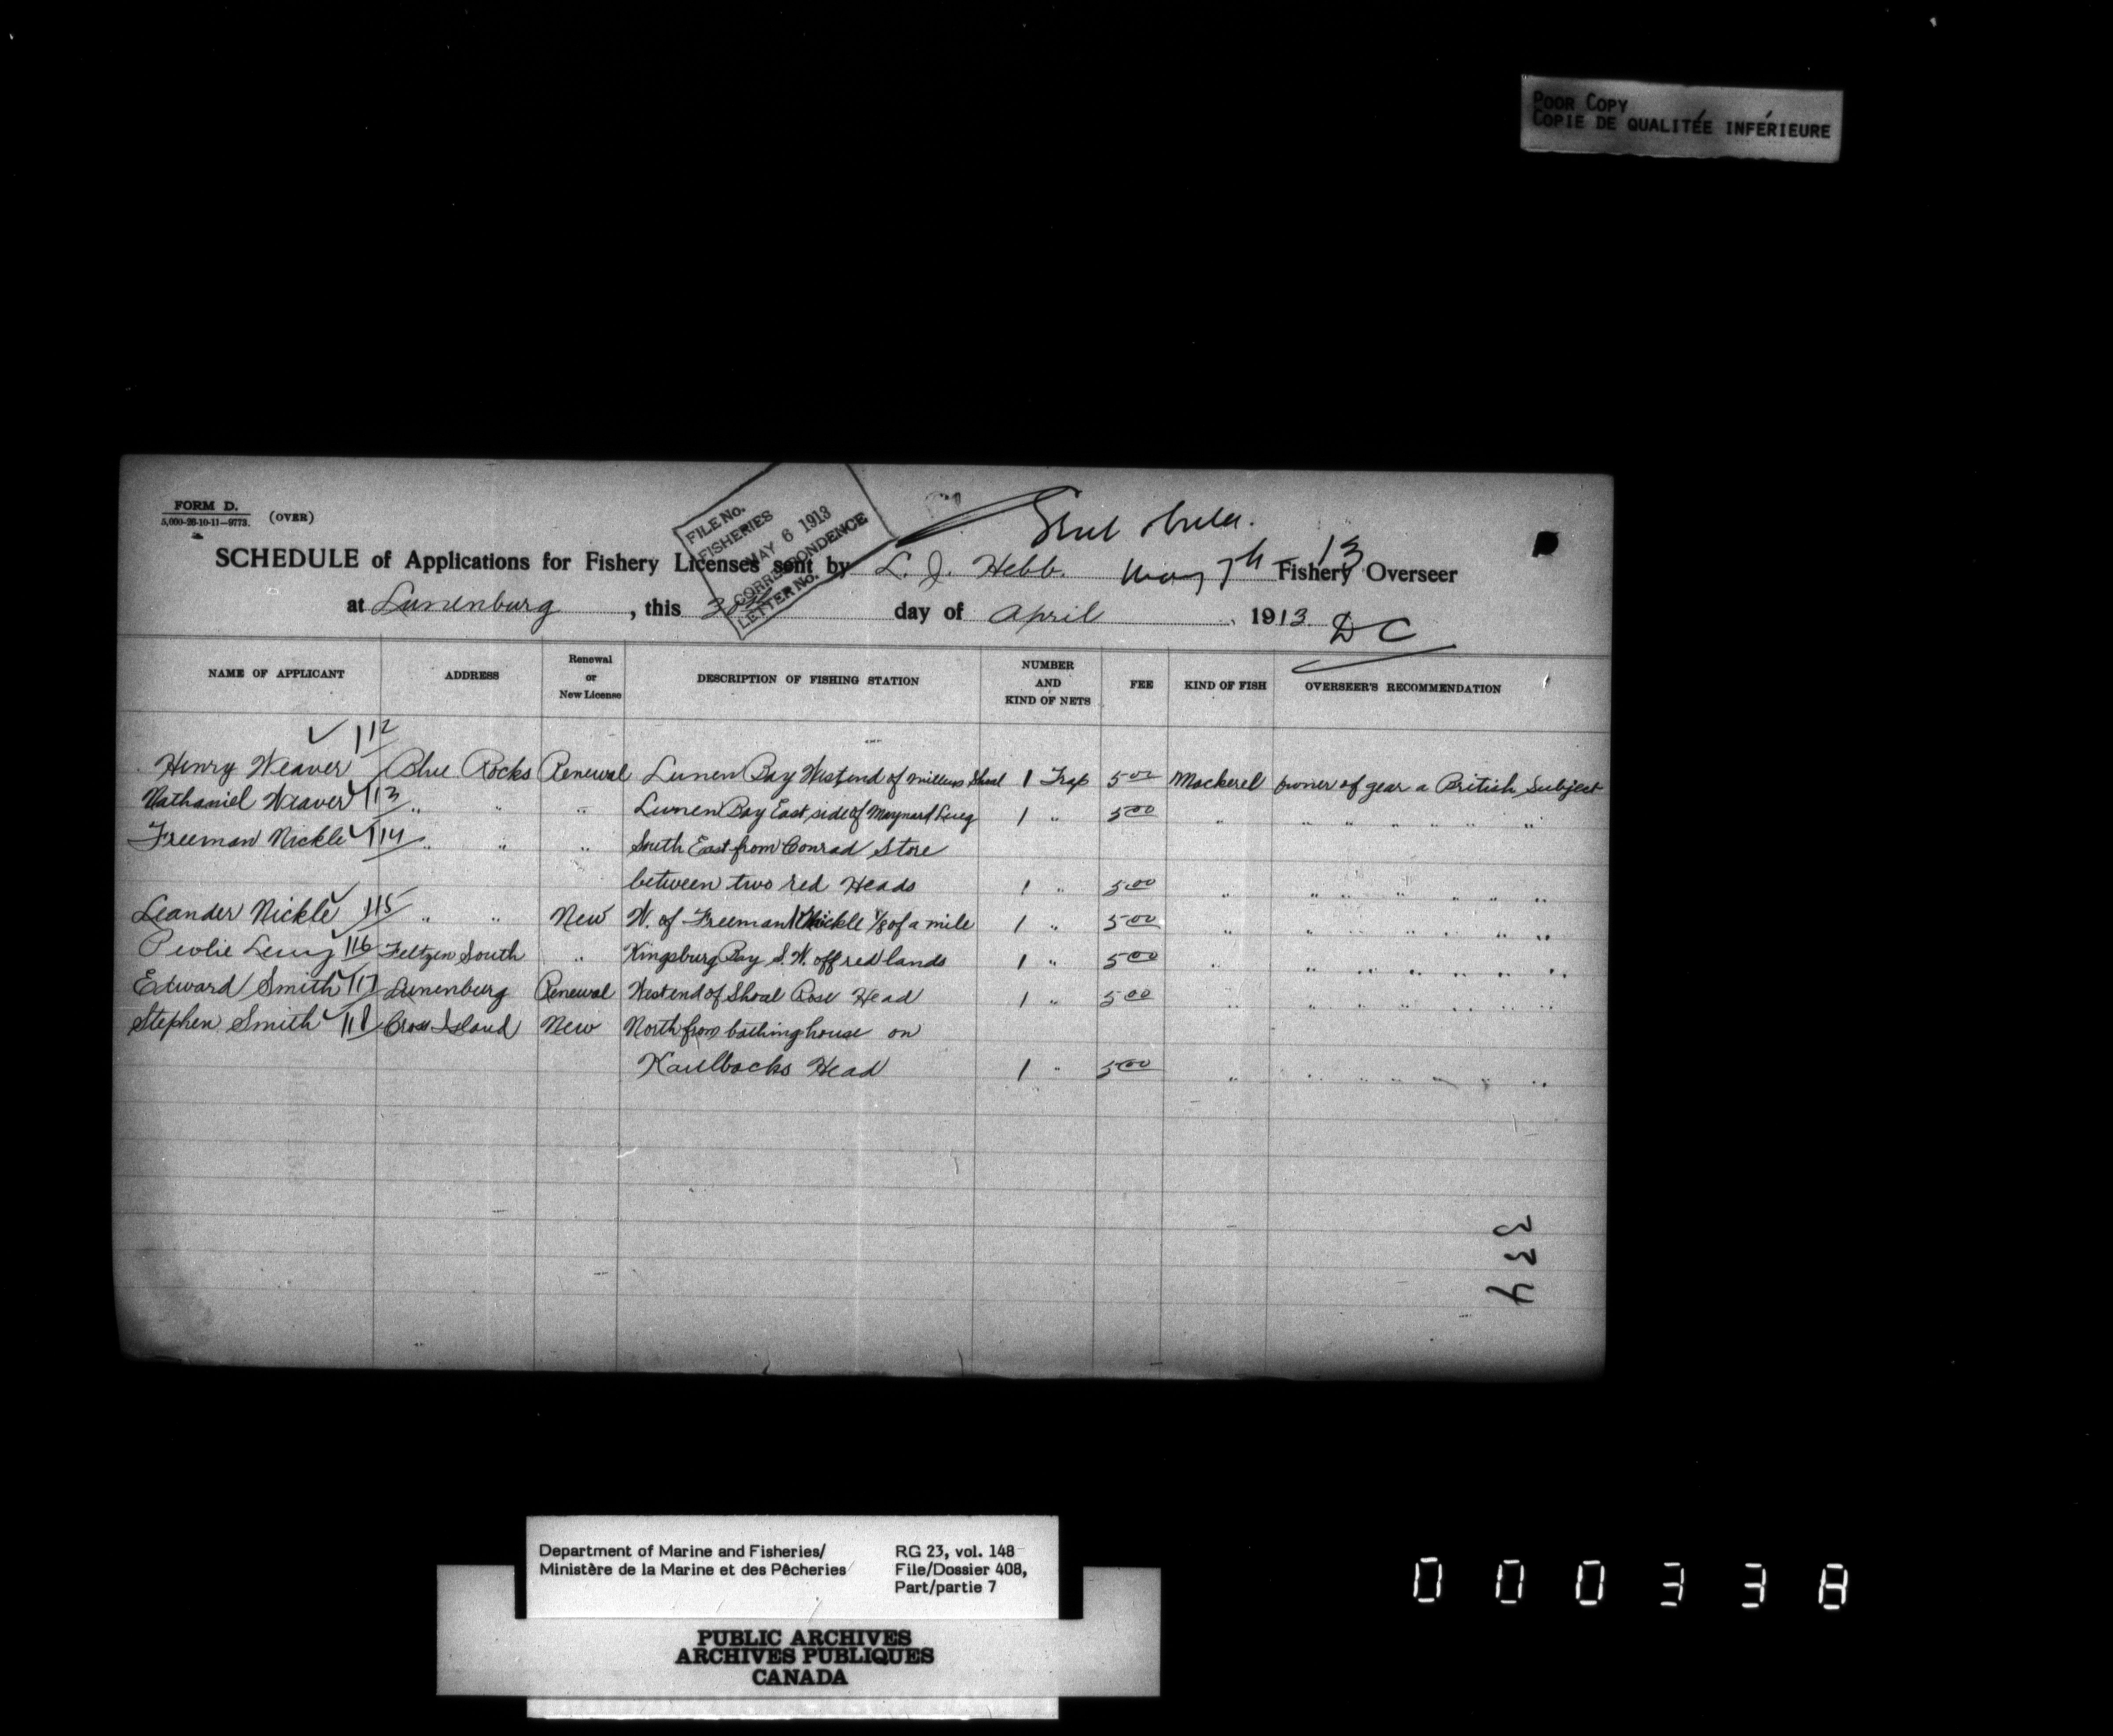 POOR COPY
COPIE DE QUALITÉE INFÉRIEURE
FORM D.
5,000-26-10-11-9773.
(OVER)
FILE No.
FISHERIES
MAY 6 1913
CORRESPONDENCE
LETTER No.
SCHEDULE of Applications for Fishery Licenses sent by L. J. Hebb. May 7th 13 Fishery Overseer
at Lunenburg, this 30th day of April 1913.
DC
NAME OF APPLICANT ADDRESS Renewal or New License DESCRIPTION OF FISHING STATION NUMBER AND KIND OF NETS FEE KIND OF FISH OVERSEER'S RECOMMENDATION
Henry Weaver 112 Blue Rocks Renewal Lunen Bay West end of Shoal 1 Trap 5.00 Mackerel owner of gear a British Subject
Nathaniel Weaver 113 " " " Lunen Bay East side of Maynard 1 " 5.00 " " " " " " "
Freeman Nickle 114 " " " South East from Conrad Store
between two red Heads 1 " 5.00 " " " " " " "
Leander Nickle 115 " " New W. of Freeman Nickle 1/8 of a mile 1 " 5.00 " " " " " " "
116 Feltzen South " Kingsburg Bay S. W. off red lands 1 " 5.00 " " " " " " "
Edward Smith 117 Lunenburg Renewal West end of Shoal Rose Head 1 " 5.00 " " " " " " "
Stephen Smith 118 Cross Island New North from bathing house on
Kaulbacks Head 1 " 5.00 " " " " " " "
334
Department of Marine and Fisheries/
Ministère de la Marine et des Pêcheries
RG 23, vol. 148
File/Dossier 408,
Part/partie 7
PUBLIC ARCHIVES
ARCHIVES PUBLIQUES
CANADA
000338